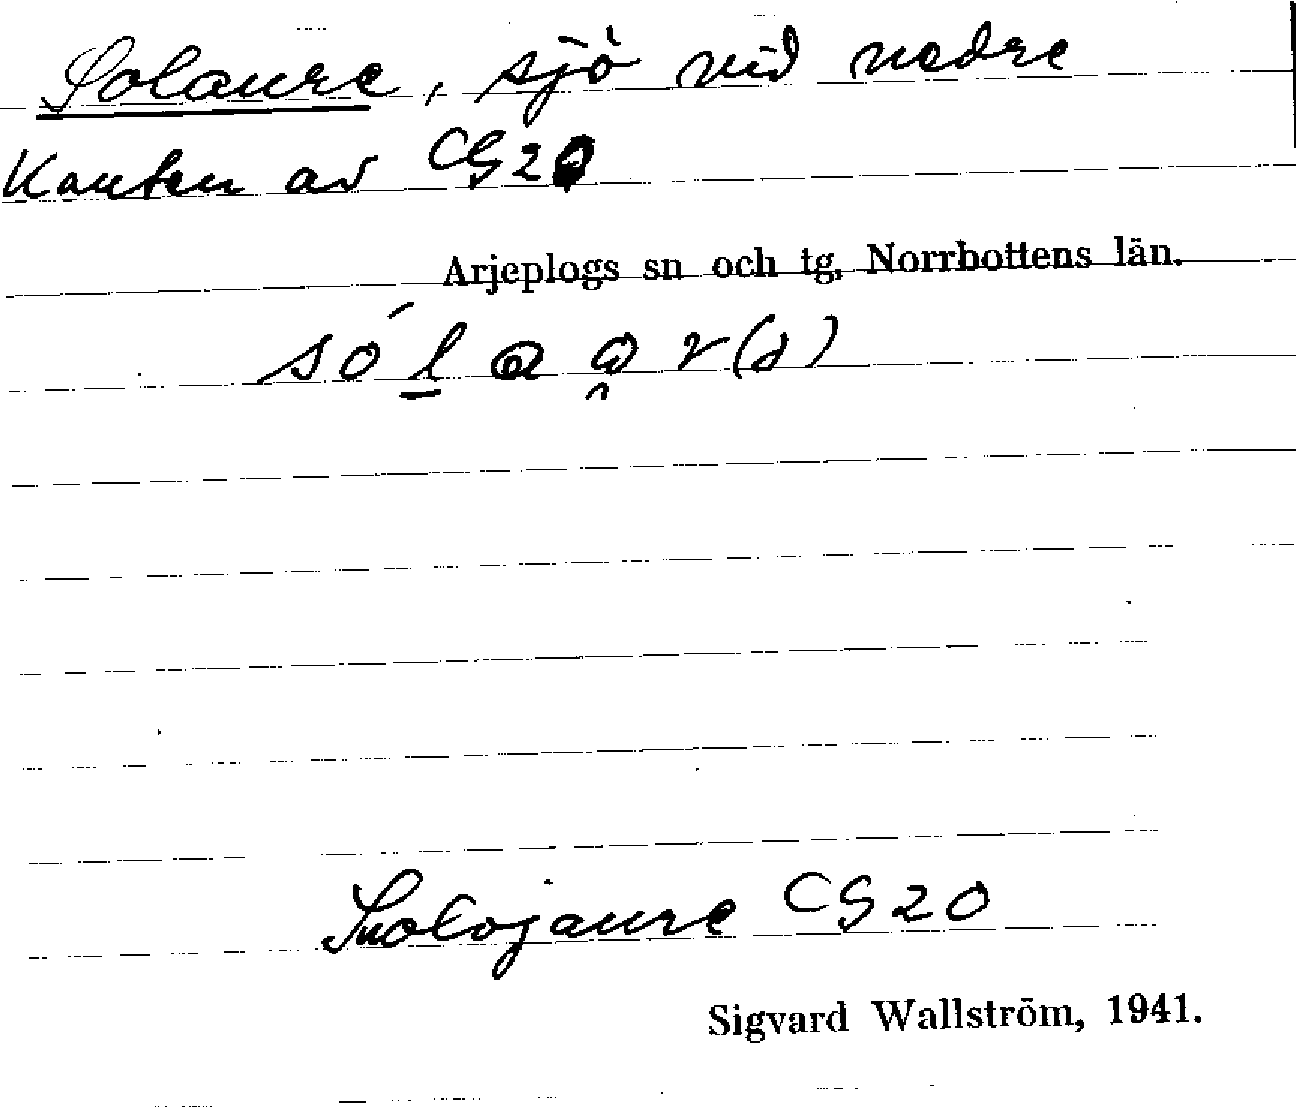 Solaure, sjö vid nedre
Kanten av CG20
Arjeplogs sn och tg, Norrbottens län.
Suolojaure CG20
Sigvard Wallström, 1941.